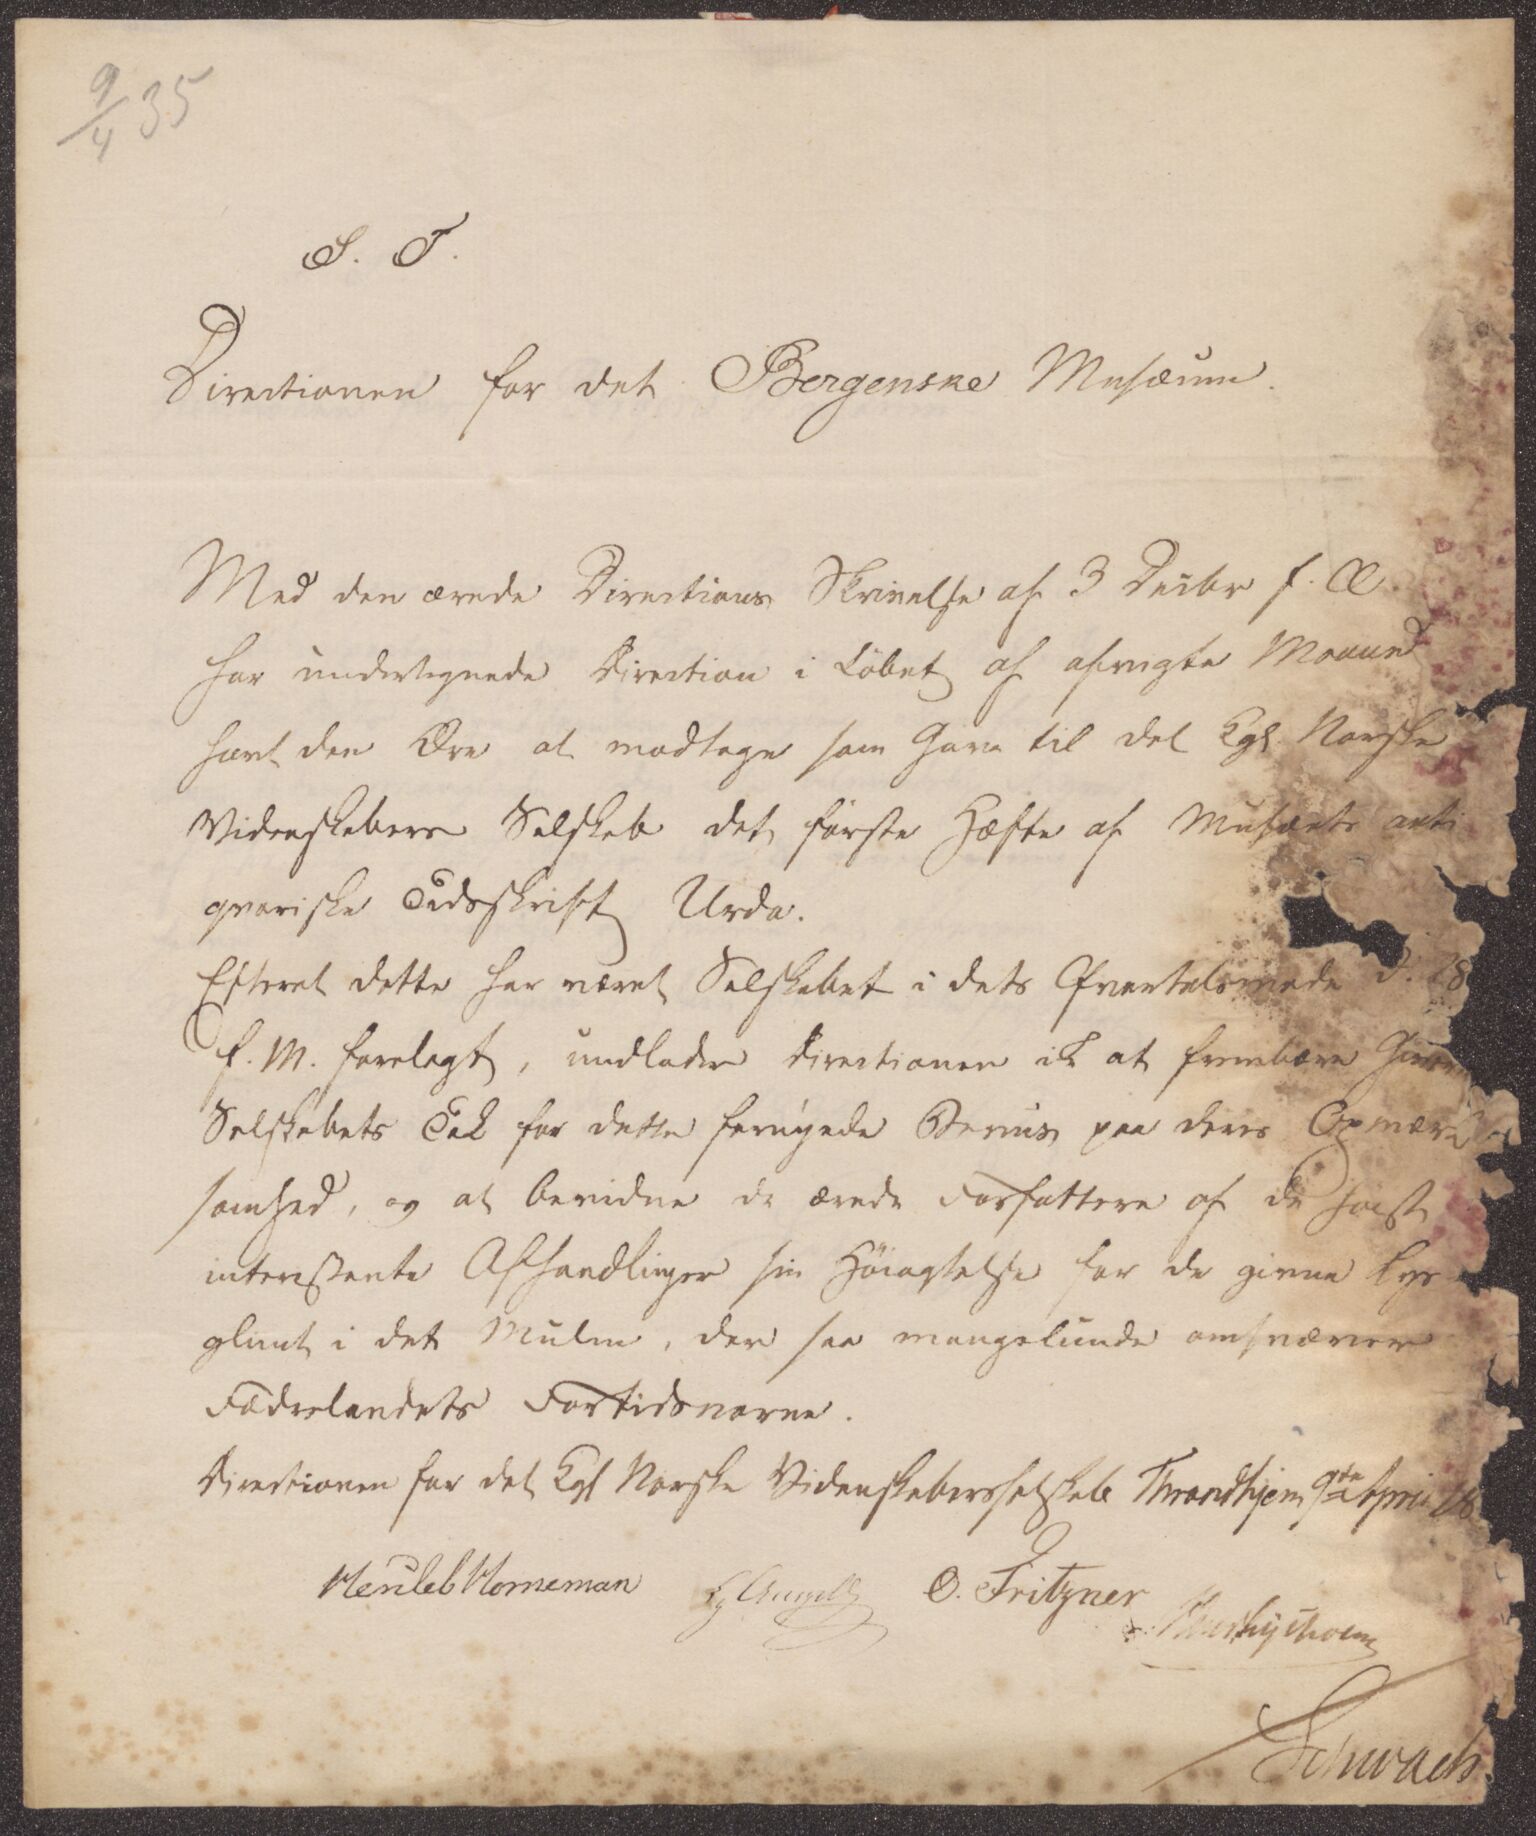 9/4 35
S. T.
Directionen for det Bergenske Musæum.
Med den ærede Directions Skrivelse af 3 Decbr f. A.
har undertegnede Direction i Løbet af afvigte Maaned
havt den Ære at modtage som Gave til det Kgl. Norske
Videnskabers Selskab det første Hæfte af Musæets anti
qvariske Tidsskrift Urda.
Efterat dette har været Selskabet i dets Qvartalsmøde d. 28
f. M. forelagt, undlader Directionen ik at frembære
Selskabets Tak for dette Beviis paa deres Opmærk
somhed, og at bevidne de ærede Forfattere af de høist
interessante Afhandlinger sin Høiagtelse for de givne Lys
glimt i det Mulm, der saa mangelunde omsvæver
Fædrelandets Fortidsnorne.
Directionen for det Kgl Norske Videnskabersselskab Throndhjem 9de April 18
Henleb Horneman Angell O. Fritzner
Schwach.